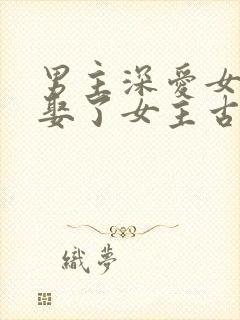 男主深愛女
娶了女主古
織夢